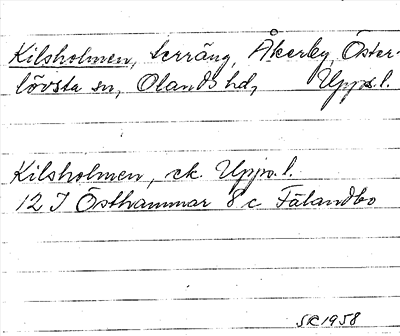 Kilsholmen, terräng, Åkerby, Öster-
lövsta sn, Olands hd, Upps.l.
Kilsholmen, ek. Upps.l.
12 I Östhammar 8 c Fälandbo
SR 1958